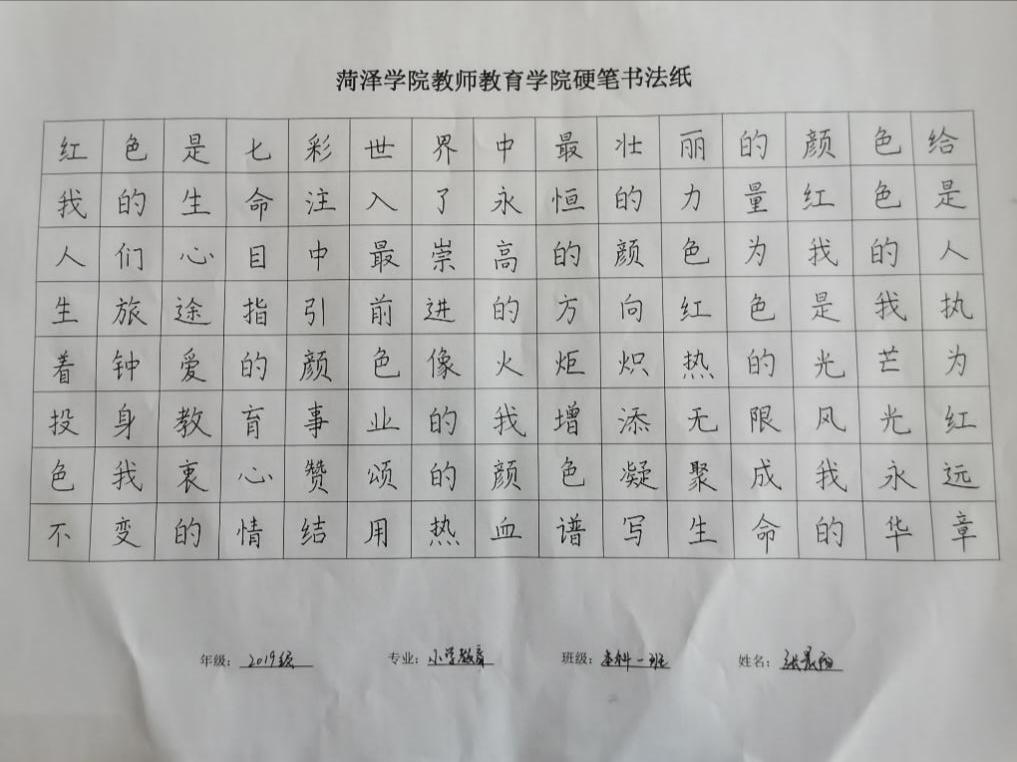 菏泽学院教师教育学院硬笔书法纸
红色是七彩世界中最壮丽的颜色给
我的生命注入了永恒的力量红色是
人们心目中最崇高的颜色为我的人
生旅途指引前进的方向红色是我执
着钟爱的颜色像火炬炽热的光芒为
投身教育事业的我增添无限风光红
色我衷心赞颂的颜色凝聚成我永远
不变的情结用热血谱写生命的华章
年级：2019级 专业：小学教育 班级：本科一班 姓名：张晨阳